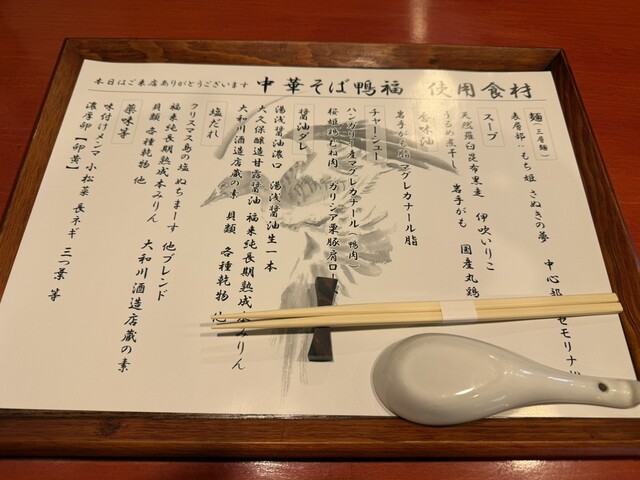 本日はご来店ありがとうございます 中華そば鴨福 使用食材
麺(三層麺)
表層部:もち姫 さぬきの夢 中心部 セモリナ
スープ
天然羅臼昆布黒走 伊吹いりこ
うるめ煮干し 岩手がも 国産丸鶏
香味油
岩手がも脂 マグレカナール脂
チャーシュー
ハンガリー産マグレカナール(鴨肉)
桜姫鶏むね肉 ガリシア栗豚肩ロー
醤油ダレ
湯浅醤油濃口 湯浅醤油生一本
大久保醸造甘露醤油 福来純長期熟成本みりん
大和川酒造店蔵の素 貝類 各種乾物 他
塩だれ
クリスマス島の塩 ぬちまーす 他ブレンド
福来純長期熟成本みりん 大和川酒造店蔵の素
貝類 各種乾物 他
薬味等
味付けメンマ 小松菜 長ネギ 三つ葉 等
濃厚卵【卵黄】